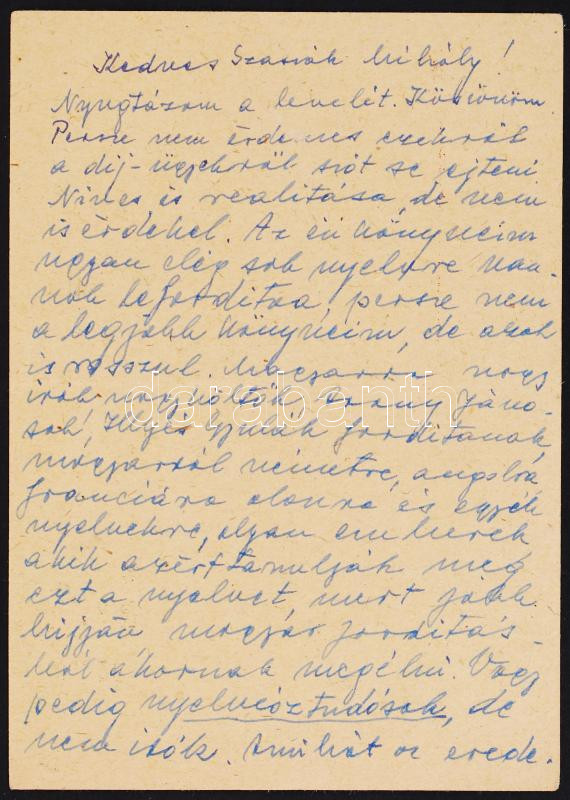 Kedves Szasiák Mihály!
Nyugtázom a levelét. Köszönöm
Persze nem érdemes ezekről
a díj-ügyekről szót se ejteni
Nincs is realitása, de nem
is érdekel. Az én könyveim
ugyan elég sok nyelvre van-
nak lefordítva, persze nem
a legjobb könyveim, de azok
is rosszul. Magyarra nagy
írók Arany Jáno-
sok, Illyés Gyulák fordítanak,
magyarról németre, angolra
franciára olaszra és egyéb
nyelvekre, olyan emberek
akik azért tanulják meg
ezt a nyelvet, mert jobb
híjján magyar fordítás-
ból akarnak megélni. Vagy
pedig nyelvésztudósok, de
nem írók. Amihát az erede-
darabanth